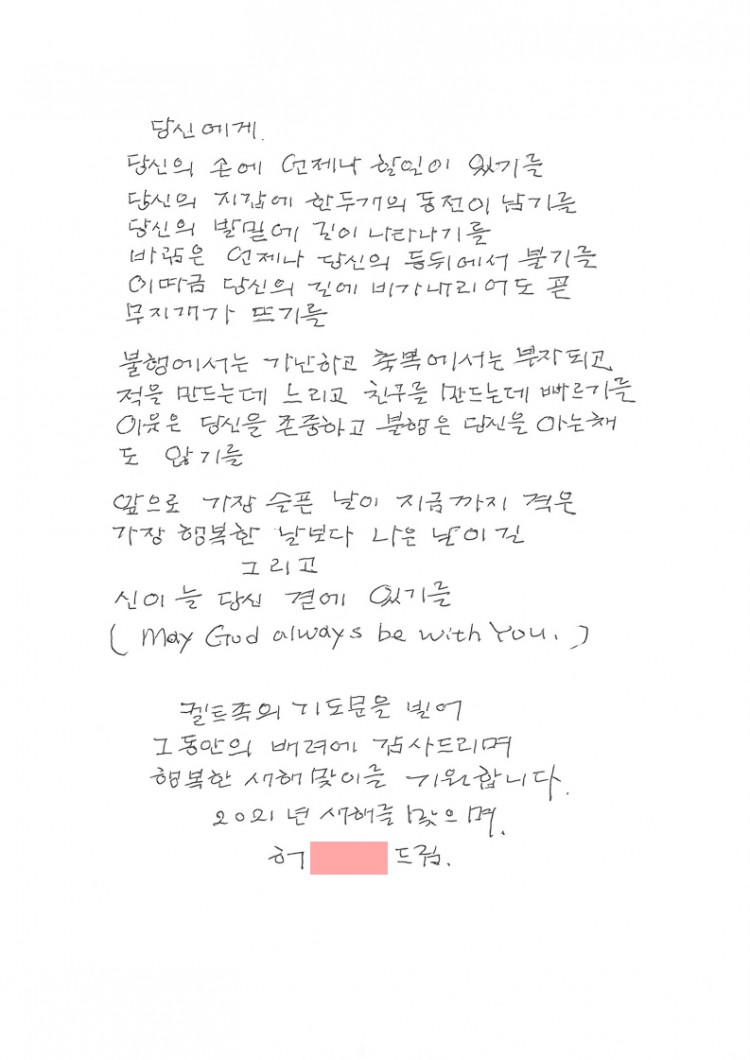 당신에게.
당신의 손에 언제나 할일이 있기를
당신의 지갑에 한두개의 동전이 남기를
당신의 발밑에 길이 나타나기를
바람은 언제나 당신의 등뒤에서 불기를
이따금 당신의 길에 비가내리어도 곧
무지개가 뜨기를
불행에서는 가난하고 축복에서는 부자되고
적을 만드는데 느리고 친구를 만드는데 빠르기를
이웃은 당신을 존중하고 불행은 당신을 아는체
도 않기를
앞으로 가장 슬픈 날이 지금까지 겪은
가장 행복한 날보다 나은 날이길
그리고
신이 늘 당신 곁에 있기를
( May God always be with You. )
켈트족의 기도문을 빌어
그동안의 배려에 감사드리며
행복한 새해맞이를 기원합니다.
2021년 새해를 맞으며.
허 드림.